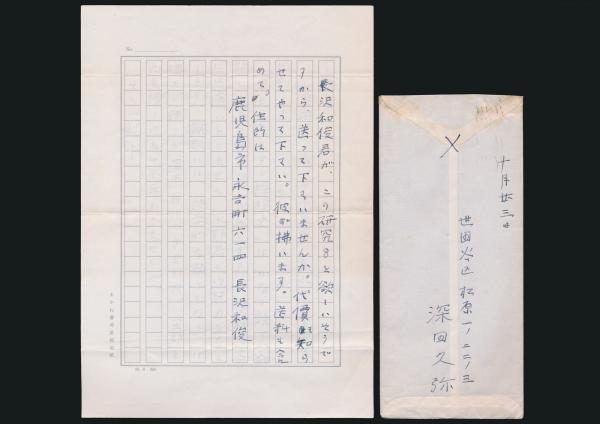 No.
長沢和俊君が、この研究8を欲しいそうで
すから、送って下さいませんか。代價知ら
せてやって下さい。彼が拂います。送料も含
めて。住所は
鹿児島市永吉町六一四 長沢和俊
十月廿三日
世田谷区松原一ノ二二ノ三
深田久弥